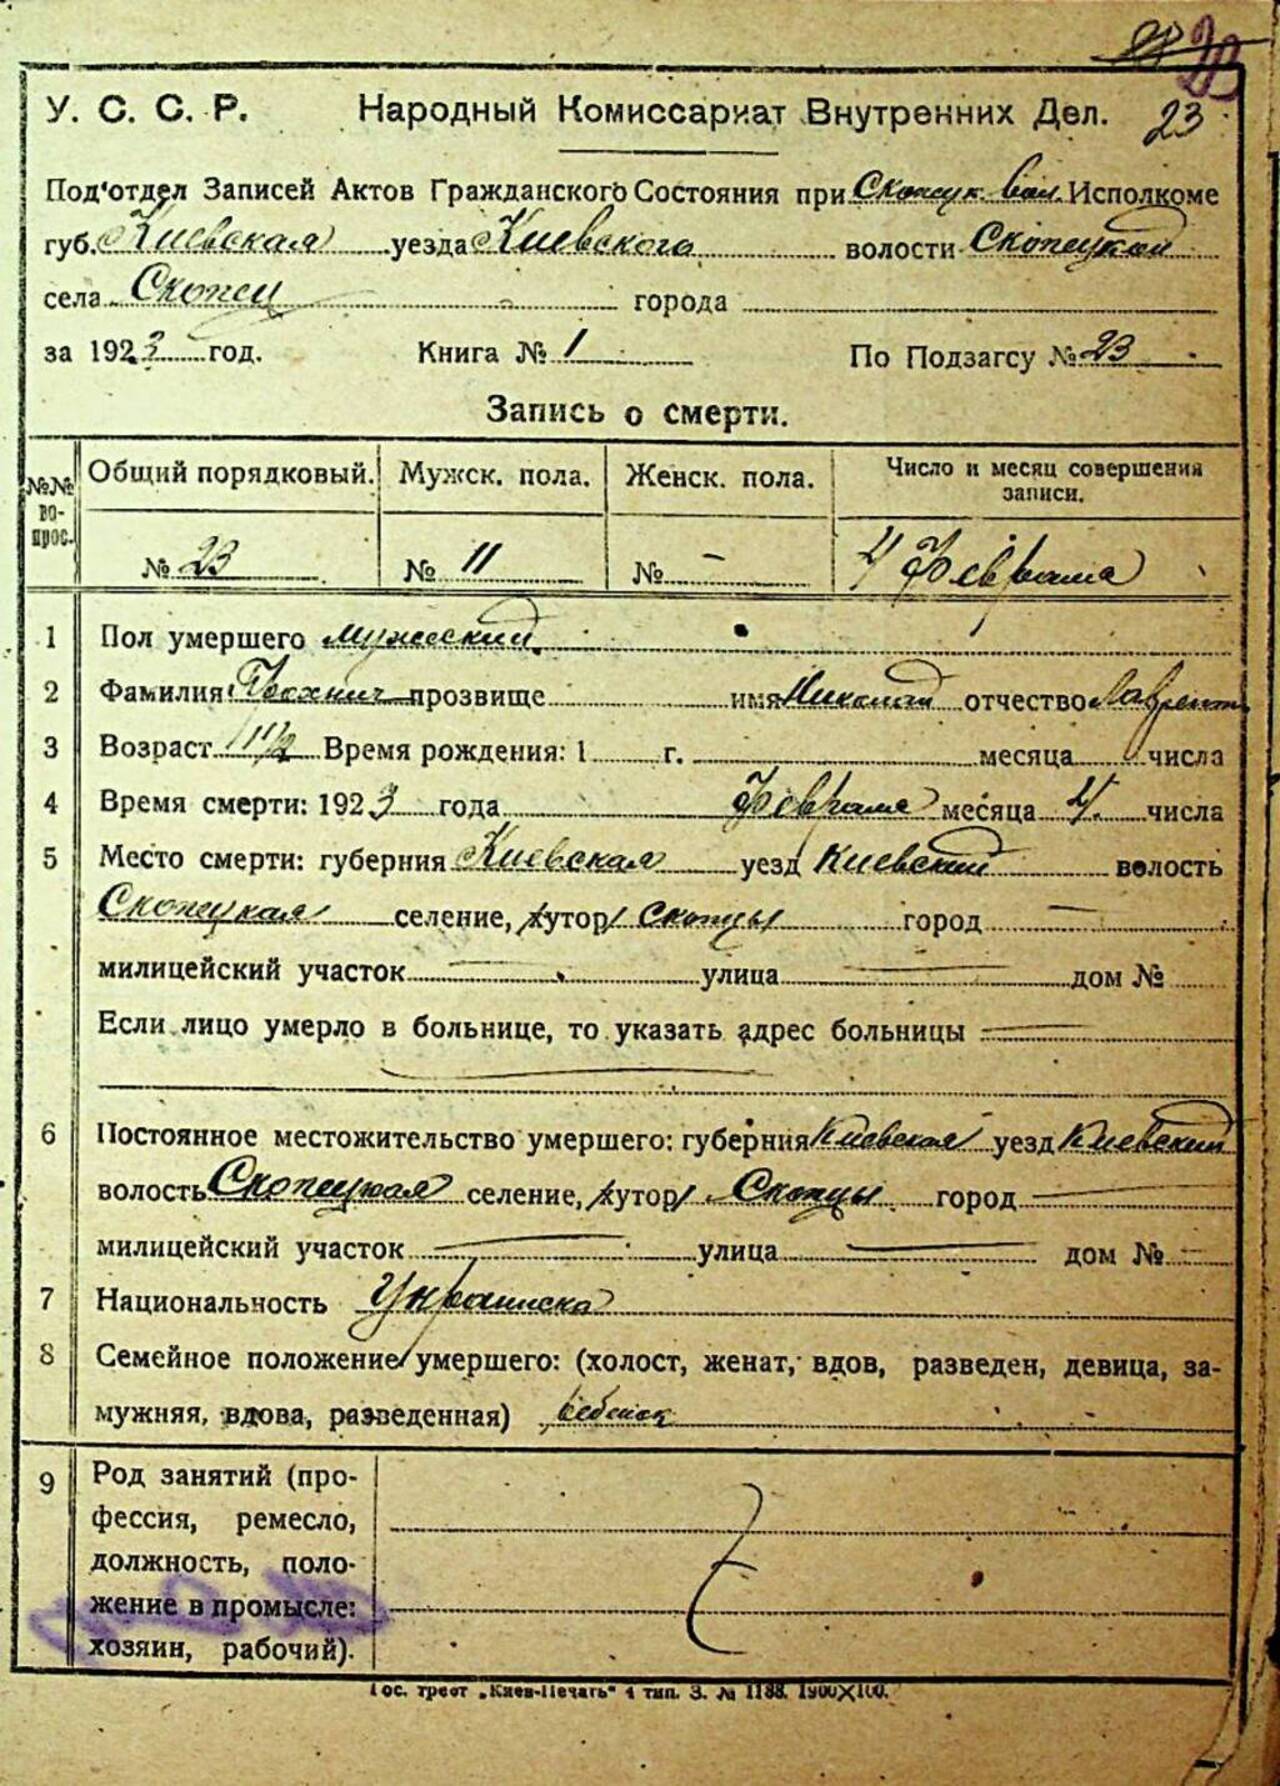 23
У. С. С. Р. Народный Комиссариат Внутренних Дел.
Под'отдел Записей Актов Гражданского Состояния при Скопецк. вол. Исполкоме
губ. Киевская уезда Киевского волости Скопецкой
села Скопец города
за 1923 год. Книга № 1 По Подзагсу № 23
Запись о смерти.
№№ во- прос. Общий порядковый. Мужск. пола. Женск. пола. Число и месяц совершения
записи.
№ 23 № 11 № – 4 Февраля
1 Пол умершего мужеский
2 Фамилия прозвище имя Николай отчество Лаврент
3 Возраст 1 1/2 Время рождения: 1 г. месяца числа
4 Время смерти: 1923 года Февраля месяца 4. числа
5 Место смерти: губерния Киевская уезд Киевский волость
Скопецкая селение, хутор Скопцы город —
милицейский участок — улица — дом №
Если лицо умерло в больнице, то указать адрес больницы —
6 Постоянное местожительство умершего: губерния Киевская уезд Киевский
волость Скопецкая селение, хутор Скопцы город —
милицейский участок — улица — дом № —
7 Национальность Украинска
8 Семейное положение умершего: (холост, женат, вдов, разведен, девица, за-
мужняя, вдова, разведенная) ребенок
9 Род занятий (про-
фессия, ремесло,
должность, поло-
жение в промысле:
хозяин, рабочий).
Гос. трест „Киев-Печать" 4 тип. З. № 1188. 1900×100.